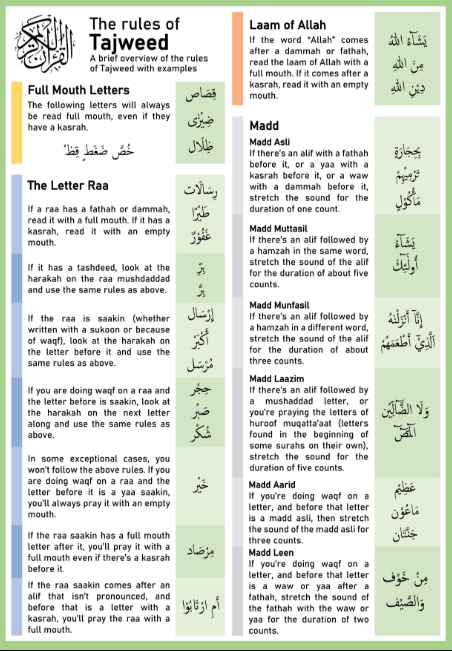 القرآن الكريم
The rules of
Tajweed
A brief overview of the rules
of Tajweed with examples
Full Mouth Letters
The following letters will always
be read full mouth, even if they
have a kasrah.
خُصَّ ضَغْطٍ قِظْ
قِصَاص
ضِيْزَى
ظِلَال
The Letter Raa
If a raa has a fathah or dammah,
read it with a full mouth. If it has a
kasrah, read it with an empty
mouth.
رِسَالَات
طَيْرًا
غَفُوْرٌ
If it has a tashdeed, look at the
harakah on the raa mushdaddad
and use the same rules as above.
بِرّ
بَرَّ
If the raa is saakin (whether
written with a sukoon or because
of waqf), look at the harakah on
the letter before it and use the
same rules as above.
إِرْسَال
أَكْبَرْ
مُرْسَل
If you are doing waqf on a raa and
the letter before is saakin, look at
the harakah on the next letter
along and use the same rules as
above.
حِجْر
صَبْر
شُكْر
In some exceptional cases, you
won't follow the above rules. If you
are doing waqf on a raa and the
letter before it is a yaa saakin,
you'll always pray it with an empty
mouth.
خَيْر
If the raa saakin has a full mouth
letter after it, you'll pray it with a
full mouth even if there's a kasrah
before it.
مِرْصَاد
If the raa saakin comes after an
alif that isn't pronounced, and
before that is a letter with a
kasrah, you'll pray the raa with a
full mouth.
أَمِ ارْتَابُوْا
Laam of Allah
If the word "Allah" comes
after a dammah or fathah,
read the laam of Allah with a
full mouth. If it comes after a
kasrah, read it with an empty
mouth.
يَشَآءُ اللهُ
مِنَ اللهِ
دِيْنِ اللهِ
Madd
Madd Asli
If there's an alif with a fathah
before it, or a yaa with a
kasrah before it, or a waw
with a dammah before it,
stretch the sound for the
duration of one count.
بِحِجَارَةٍ
تَرْمِيْهِمْ
مَأْكُوْلٍ
Madd Muttasil
If there's an alif followed by
a hamzah in the same word,
stretch the sound of the alif
for the duration of about five
counts.
يَشَآءُ
أُولَٰٓئِكَ
Madd Munfasil
If there's an alif followed by
a hamzah in a different word,
stretch the sound of the alif
for the duration of about
three counts.
إِنَّآ أَنْزَلْنٰهُ
الَّذِيْٓ أَطْعَمَهُمْ
Madd Laazim
If there's an alif followed by
a mushaddad letter, or
you're praying the letters of
huroof muqatta'aat (letters
found in the beginning of
some surahs on their own),
stretch the sound for the
duration of five counts.
وَلَا الضَّآلِّيْنَ
الٓمٓصٓ
Madd Aarid
If you're doing waqf on a
letter, and before that letter
is a madd asli, then stretch
the sound of the madd asli for
three counts.
عَظِيْم
مَاعُوْن
جَنَّتَان
Madd Leen
If you're doing waqf on a
letter, and before that letter
is a waw or yaa after a
fathah, stretch the sound of
the fathah with the waw or
yaa for the duration of two
counts.
مِنْ خَوْف
وَالصَّيْف